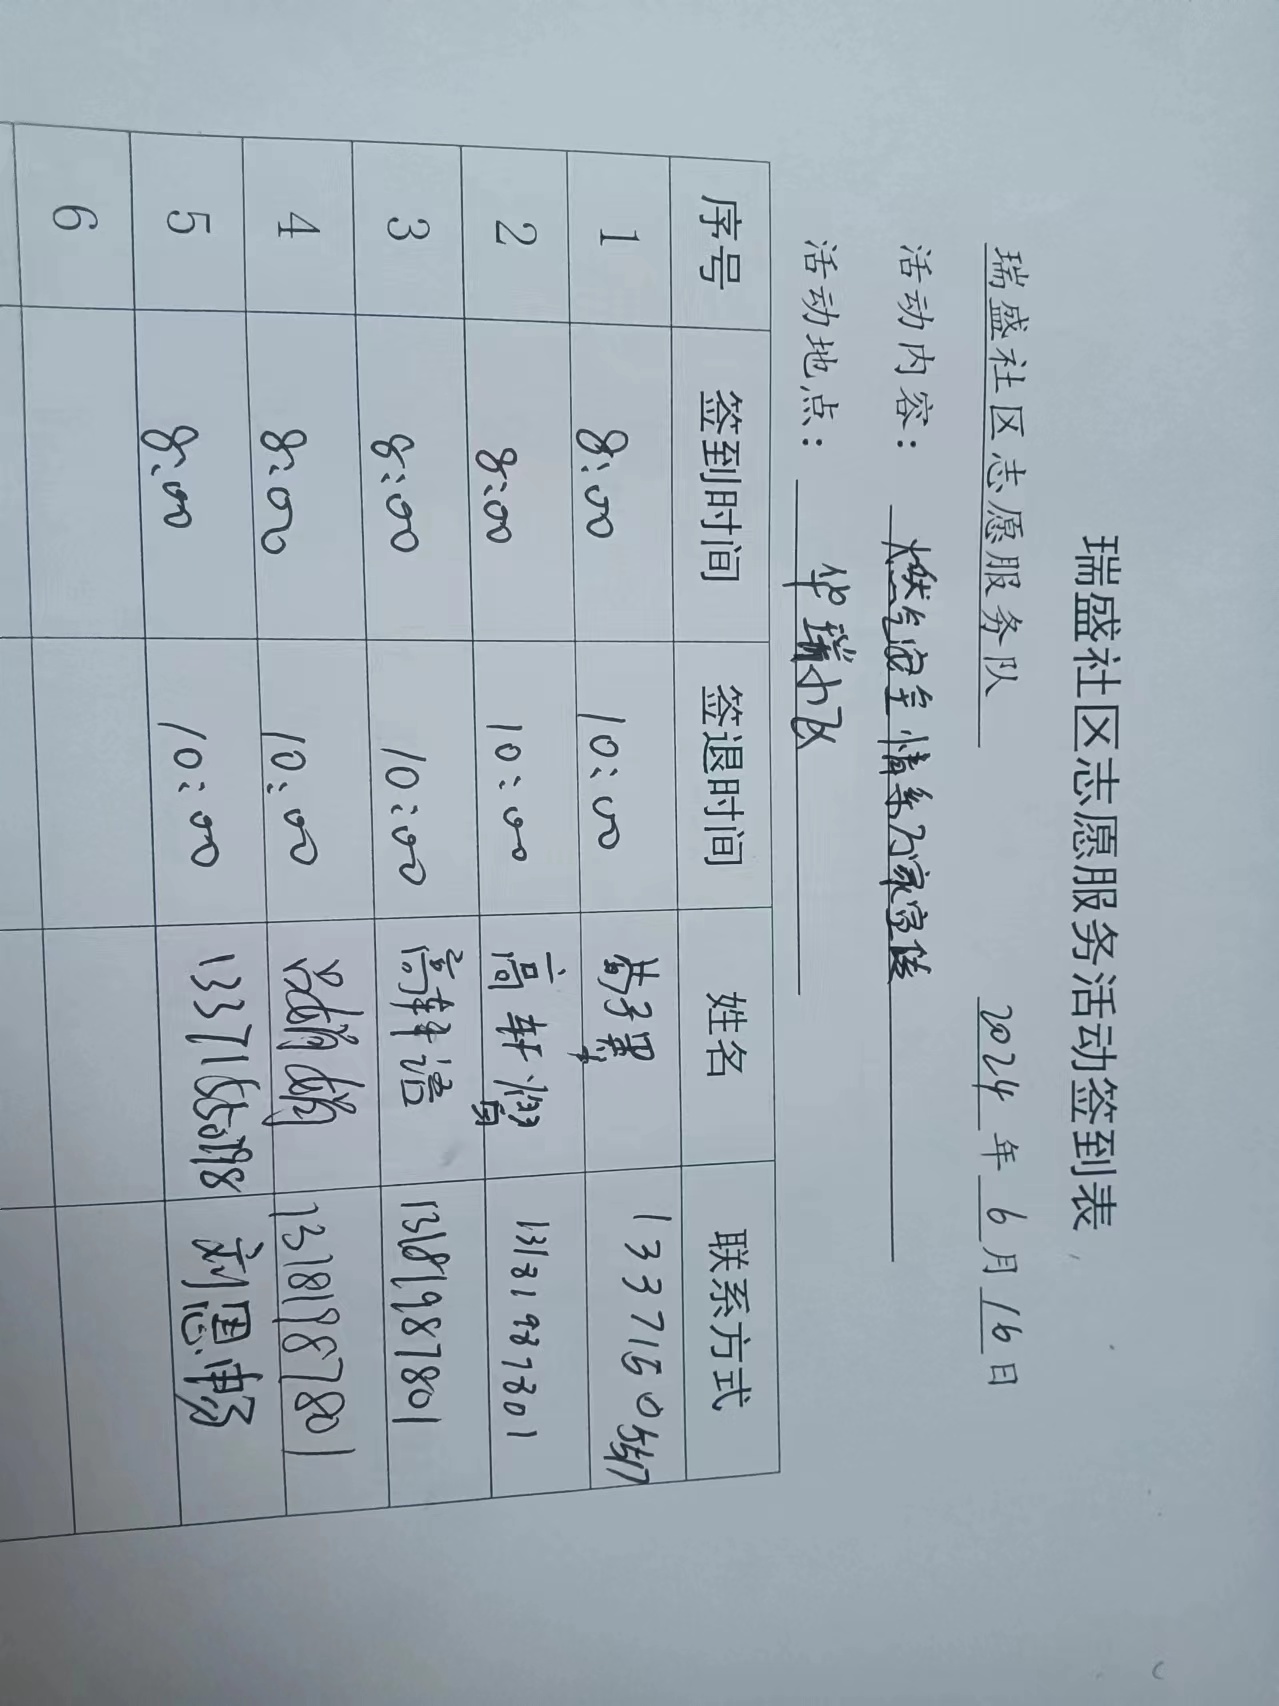 瑞盛社区志愿服务活动签到表
瑞盛社区志愿服务队 2024 年 6 月 16 日
活动内容： 燃气安全情系万家宣传
活动地点： 华瑞小区
序号 签到时间 签退时间 姓名 联系方式
1 8:00 10:00
2 8:00 10:00 高轩 13181987801
3 8:00 10:00 高轩语 13181987801
4 8:00 10:00 13181987801
5 8:00 10:00 刘恩
6